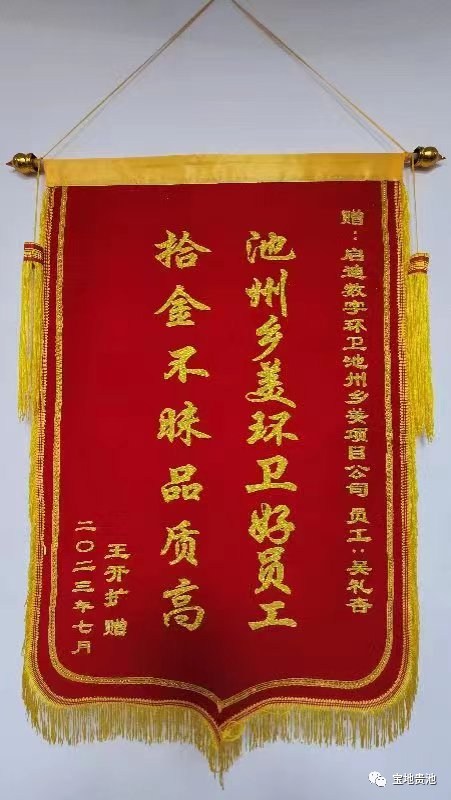 赠：启迪数字环卫池州乡美项目公司员工：吴礼杏
池州乡美环卫好员工
拾金不昧品质高
王开扩赠
二〇二三年七月
宝地贵池